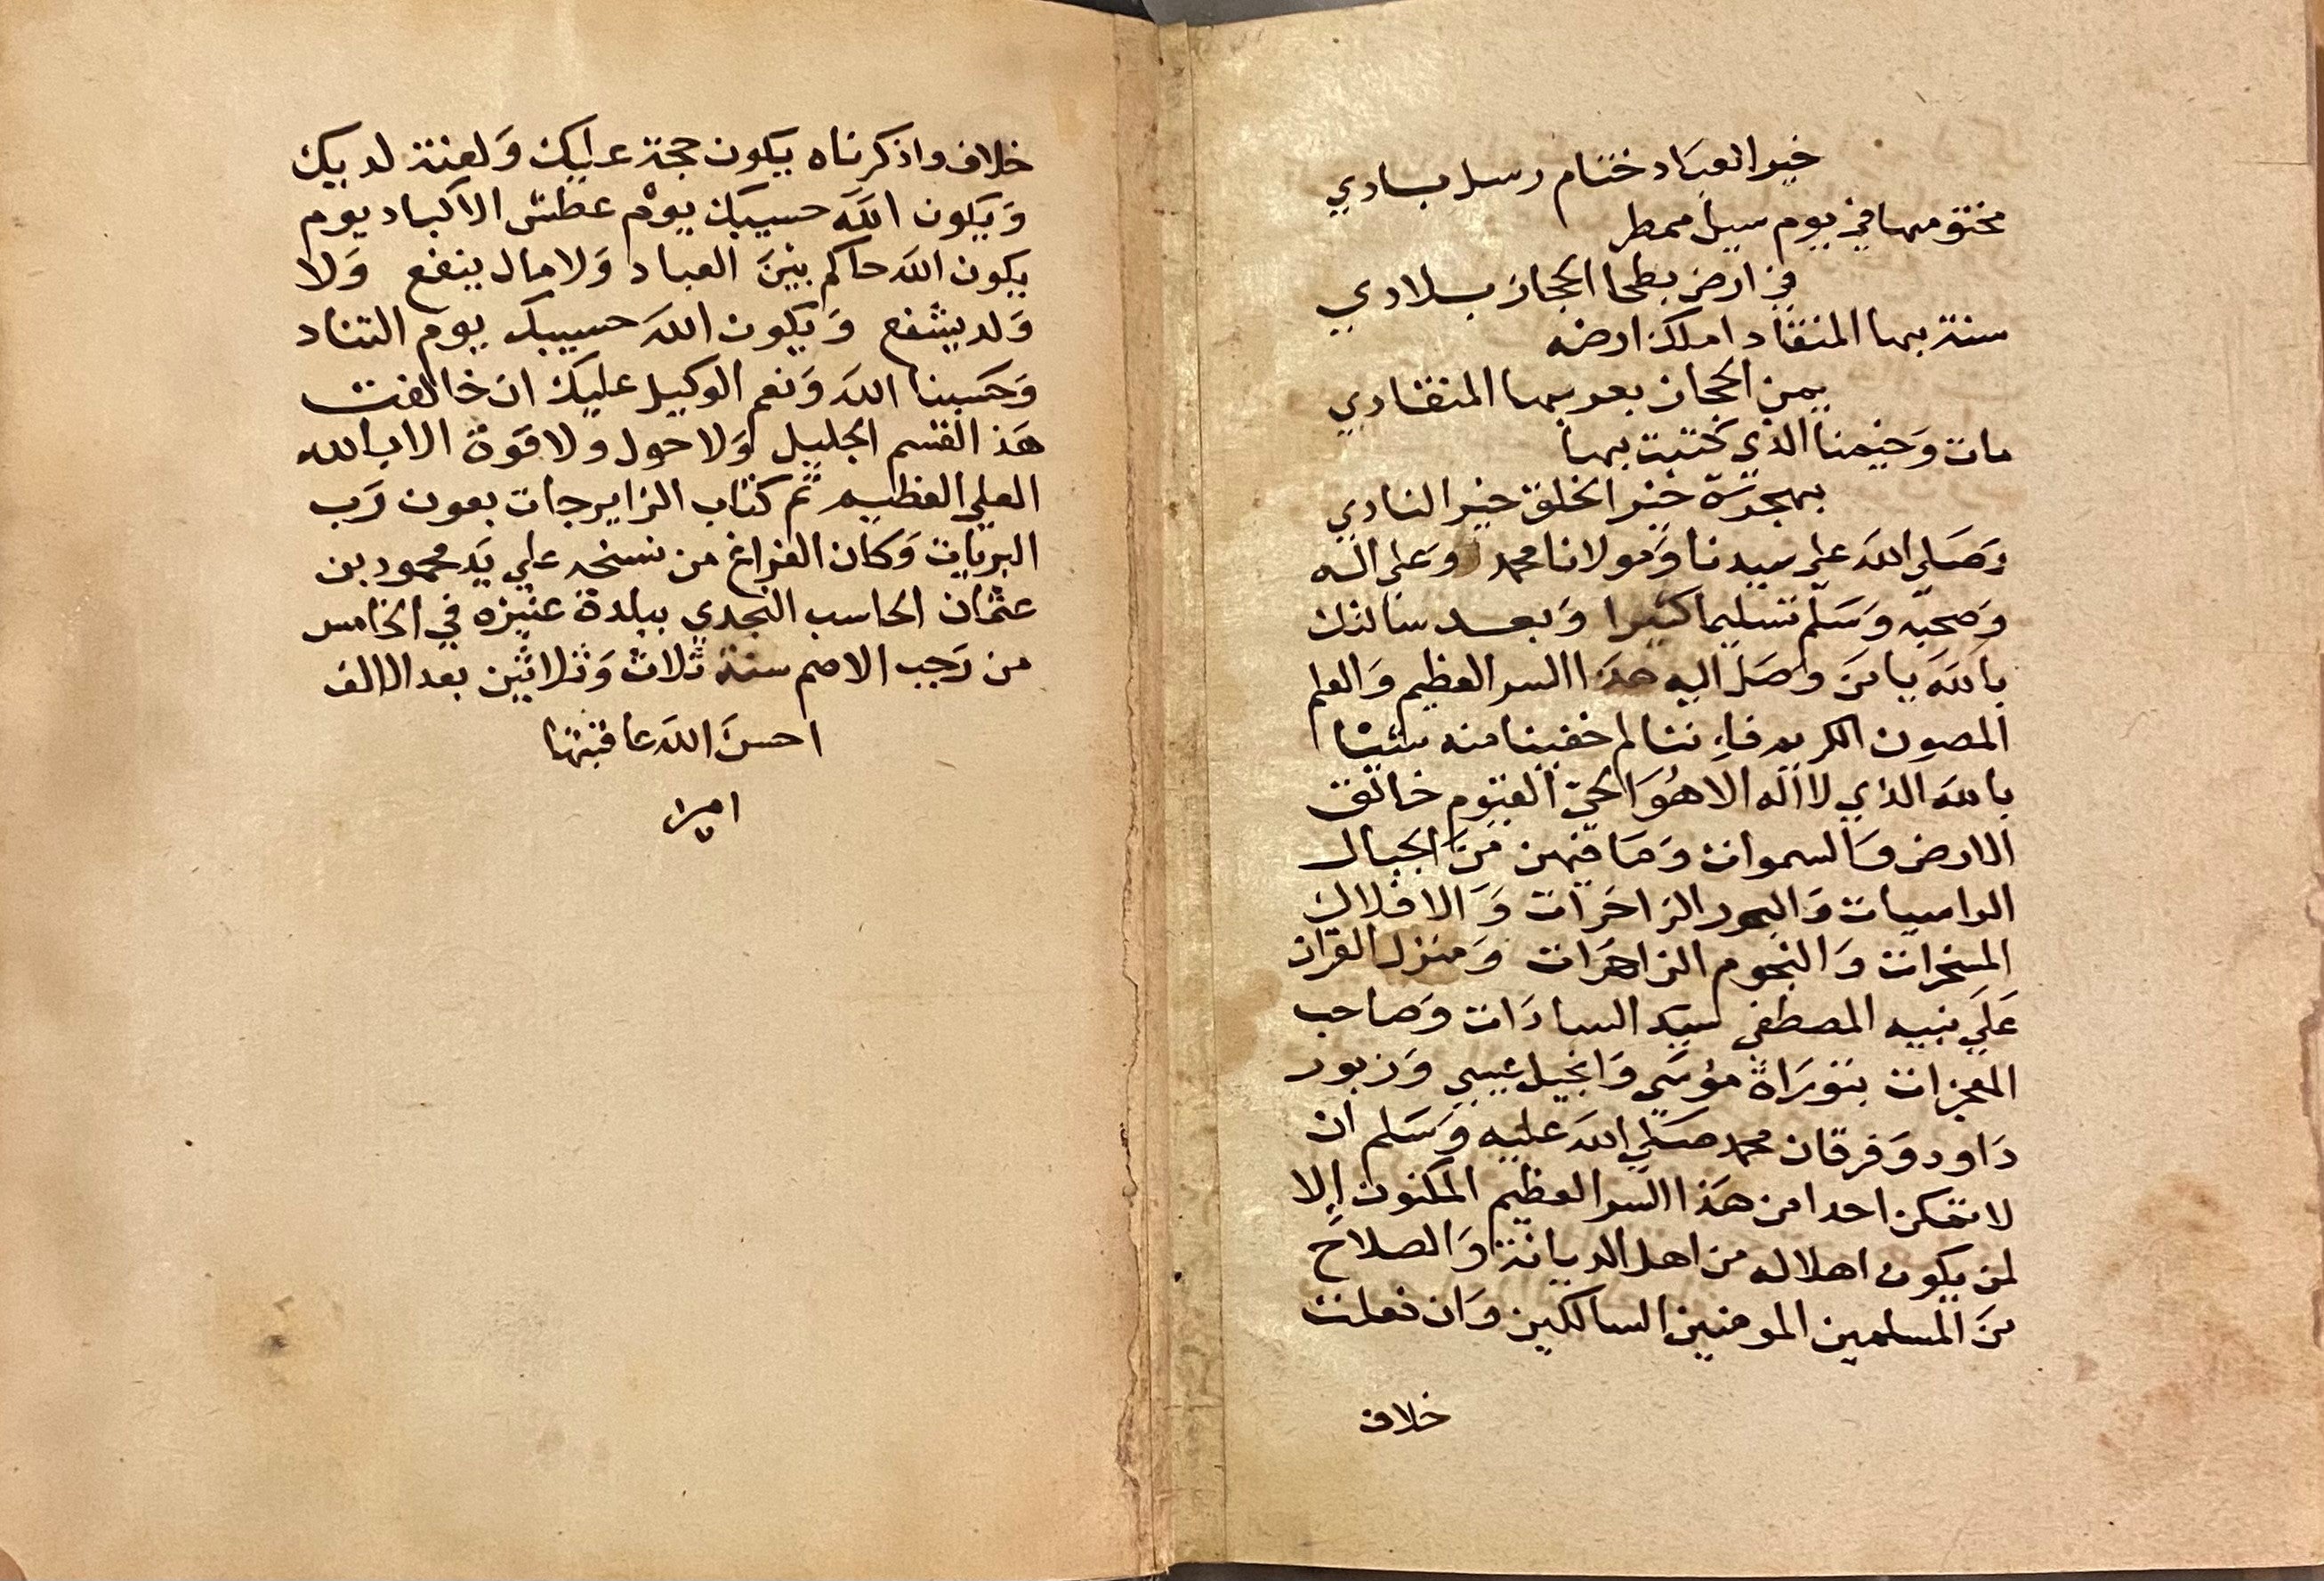 خير العباد ختام رسل بادي
مختومها في يوم سيل ممطر
في ارض بطحا الحجاز بلادي
سنة بها المنقاد املك ارضه
يمن الحجاز بعد بها المنقادي
مات وخيمنا الذي ختبت بها
بهجرة خير الخلق خير النادي
وصلي الله علي سيدنا ومولانا محمد وعلي اله
وصحبه وسلم تسليما كثيرا وبعد سالتك
بالله يا من وصل اليه هذا السر العظيم والعلم
المصون الكريم فاننا لم خفينا منه شيئا
بالله الذي لا اله الا هو الحي القيوم خالق
الارض والسموات وما فيهن من الجبال
الراسيات والبحور الزاخرات والافلاك
المسخرات والنجوم الزاهرات ومنزل القران
علي نبيه المصطفي سيد السادات وصاحب
المعجزات بتوراة موسي وانجيل عيسي وزبور
داود وفرقان محمد صلي الله عليه وسلم ان
لا تمكن احدا من هذا السر العظيم المكنون إلا
لمن يكون اهلا له من اهل الديانة والصلاح
من المسلمين المومنين السالكين وان فعلت
خلاف
خلاف واذكرناه يكون حجة عليك ولعنة لديك
ويكون الله حسيبك يوم عطش الاكباد يوم
يكون الله حاكم بين العباد ولا مال ينفع ولا
ولد يشفع ويكون الله حسيبك يوم التناد
وحسبنا الله ونعم الوكيل عليك ان خالفت
هذ القسم الجليل ولا حول ولا قوة الا بالله
العلي العظيم تم كتاب الزايرجات بعون رب
البريات وكان الفراغ من نسخه علي يد محمود بن
عثمان الحاسب النجدي ببلدة عنيزه في الخامس
من رجب الاصم سنة ثلاث وثلاثين بعد الالف
احسن الله عاقبتها
امين